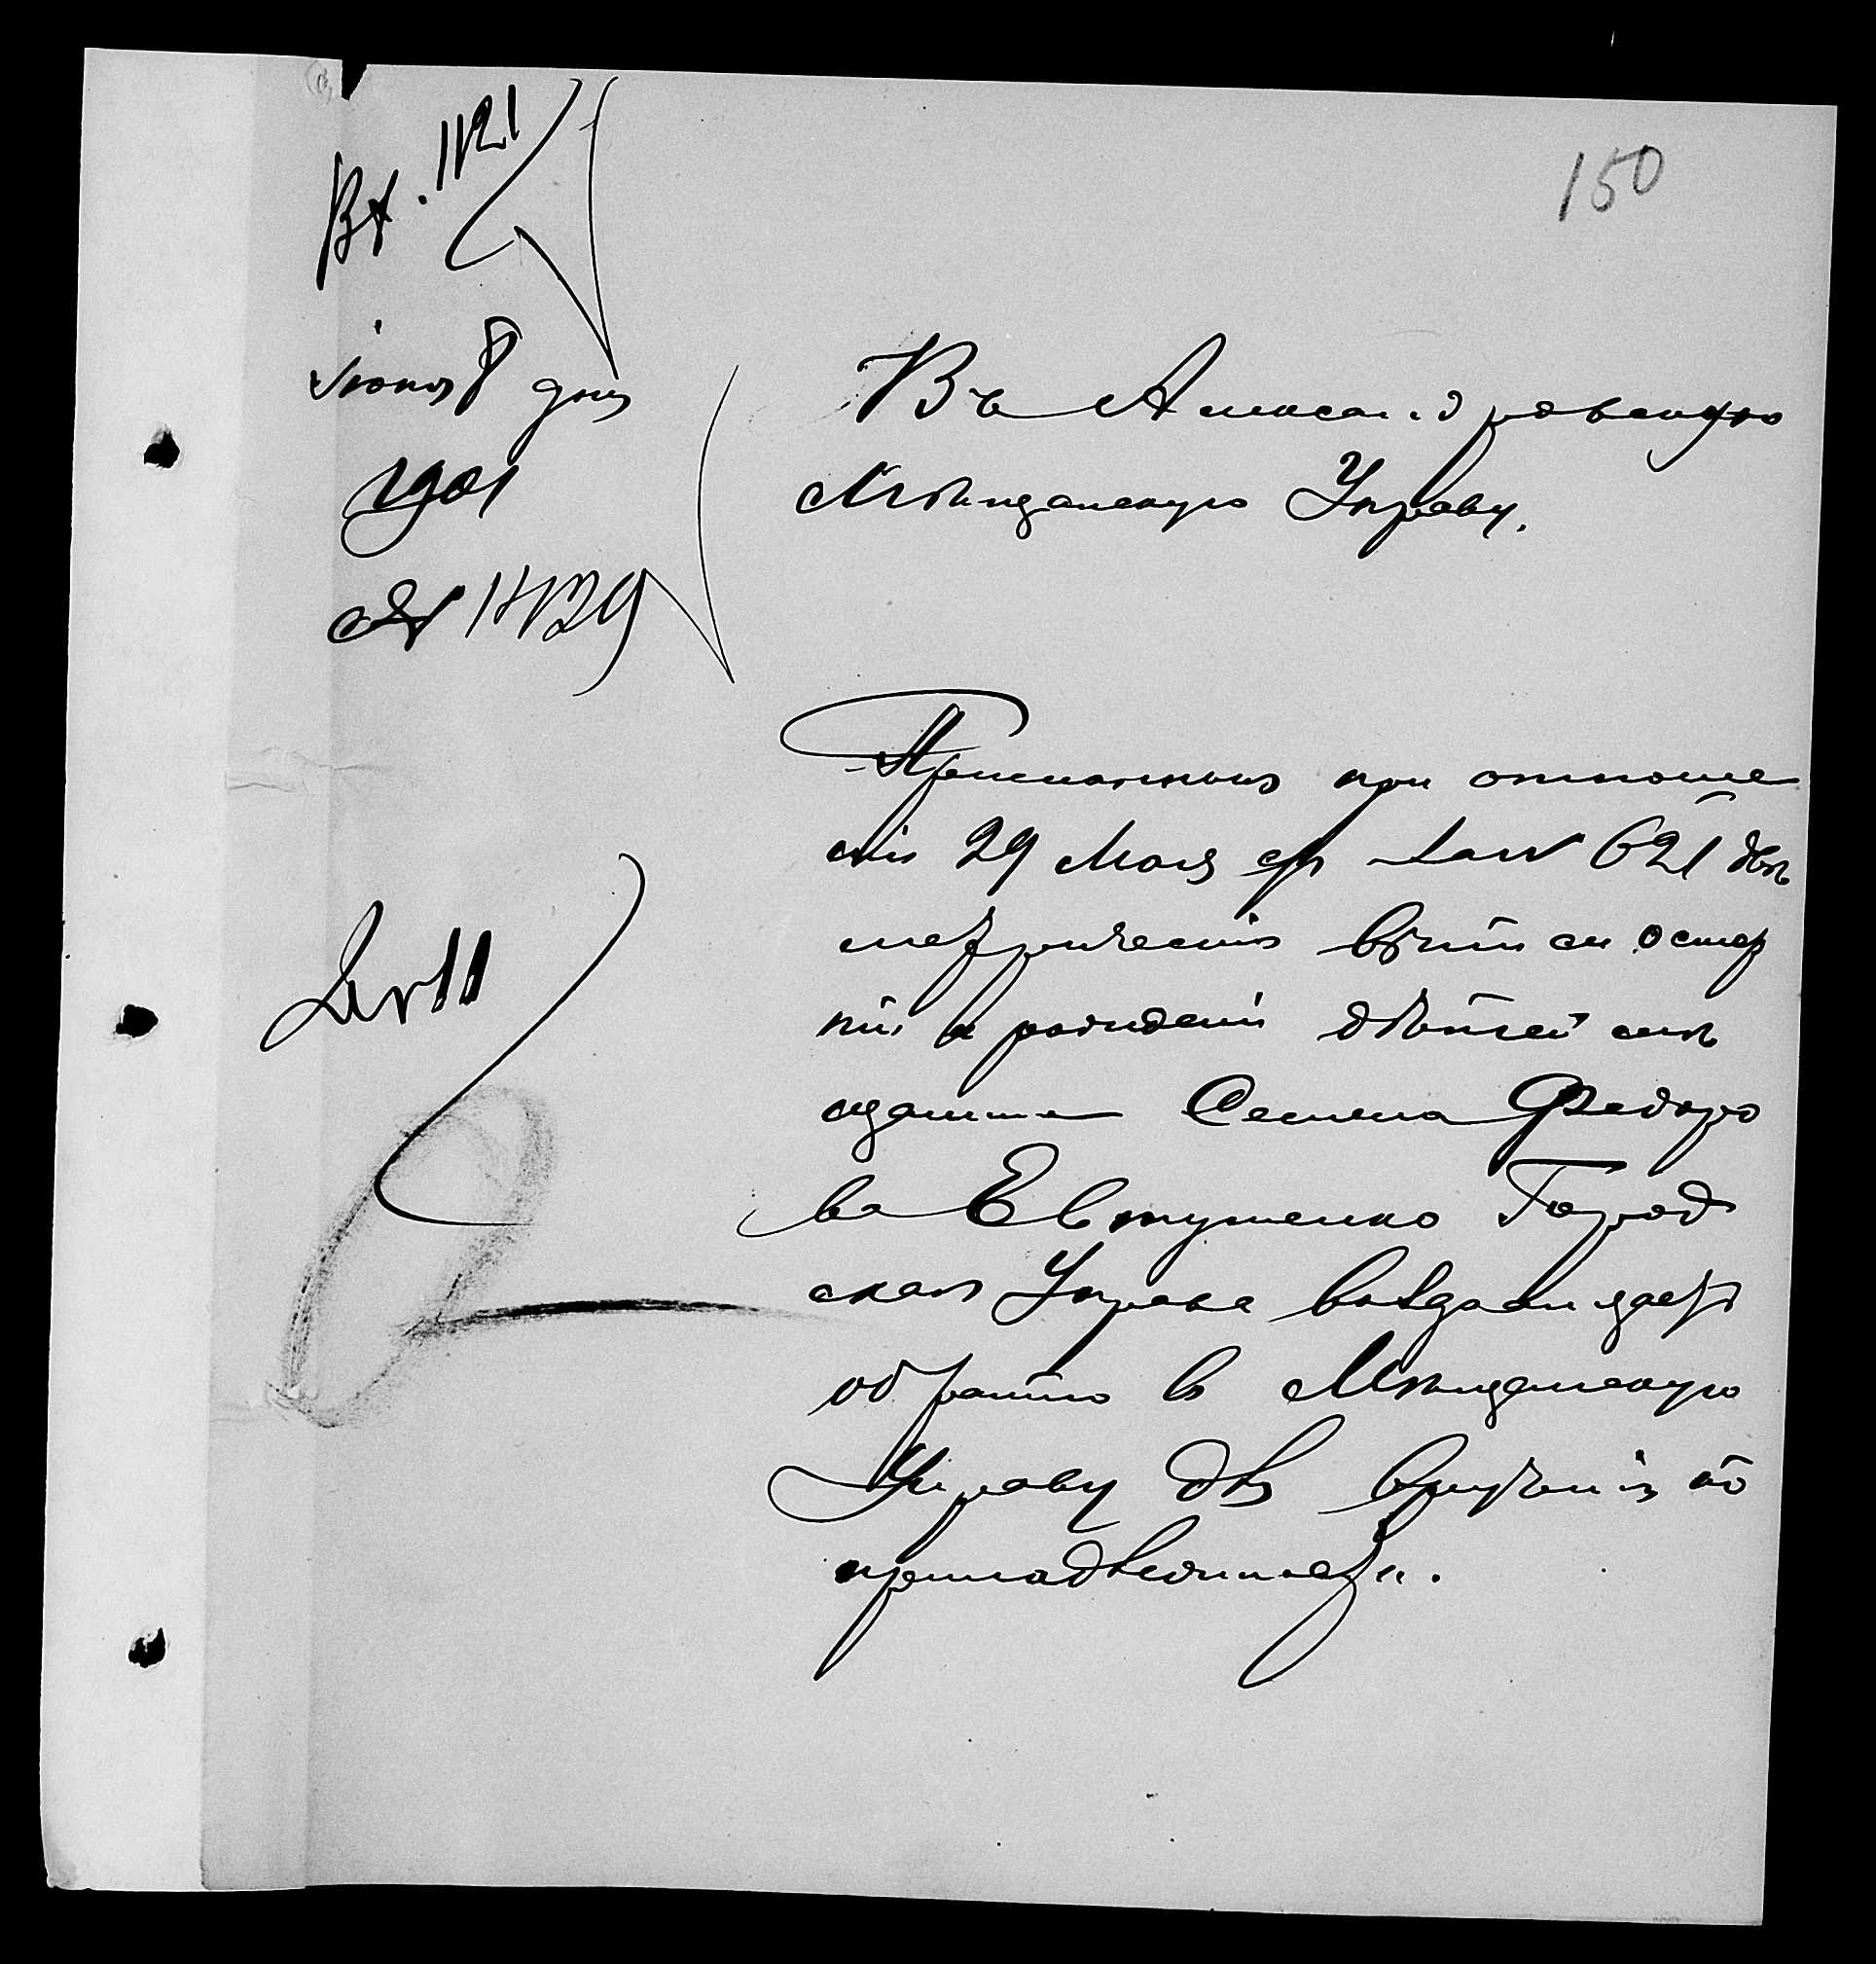 150
Вх. 1121
Іюня 8 дня
1901
№ 11129
Въ Александровскую
Мѣщанскую Управу.
Присланныя при отноше
ніи 29 Мая с/г за № 621 двѣ
метрическія выписи о смер
ти и рожденіи дѣтей мѣ
щанина Семена Федоро
ва Евтушенко Город
ская Управа возвращаетъ
обратно въ Мѣщанскую
Управу для врученія по
принадлежности.